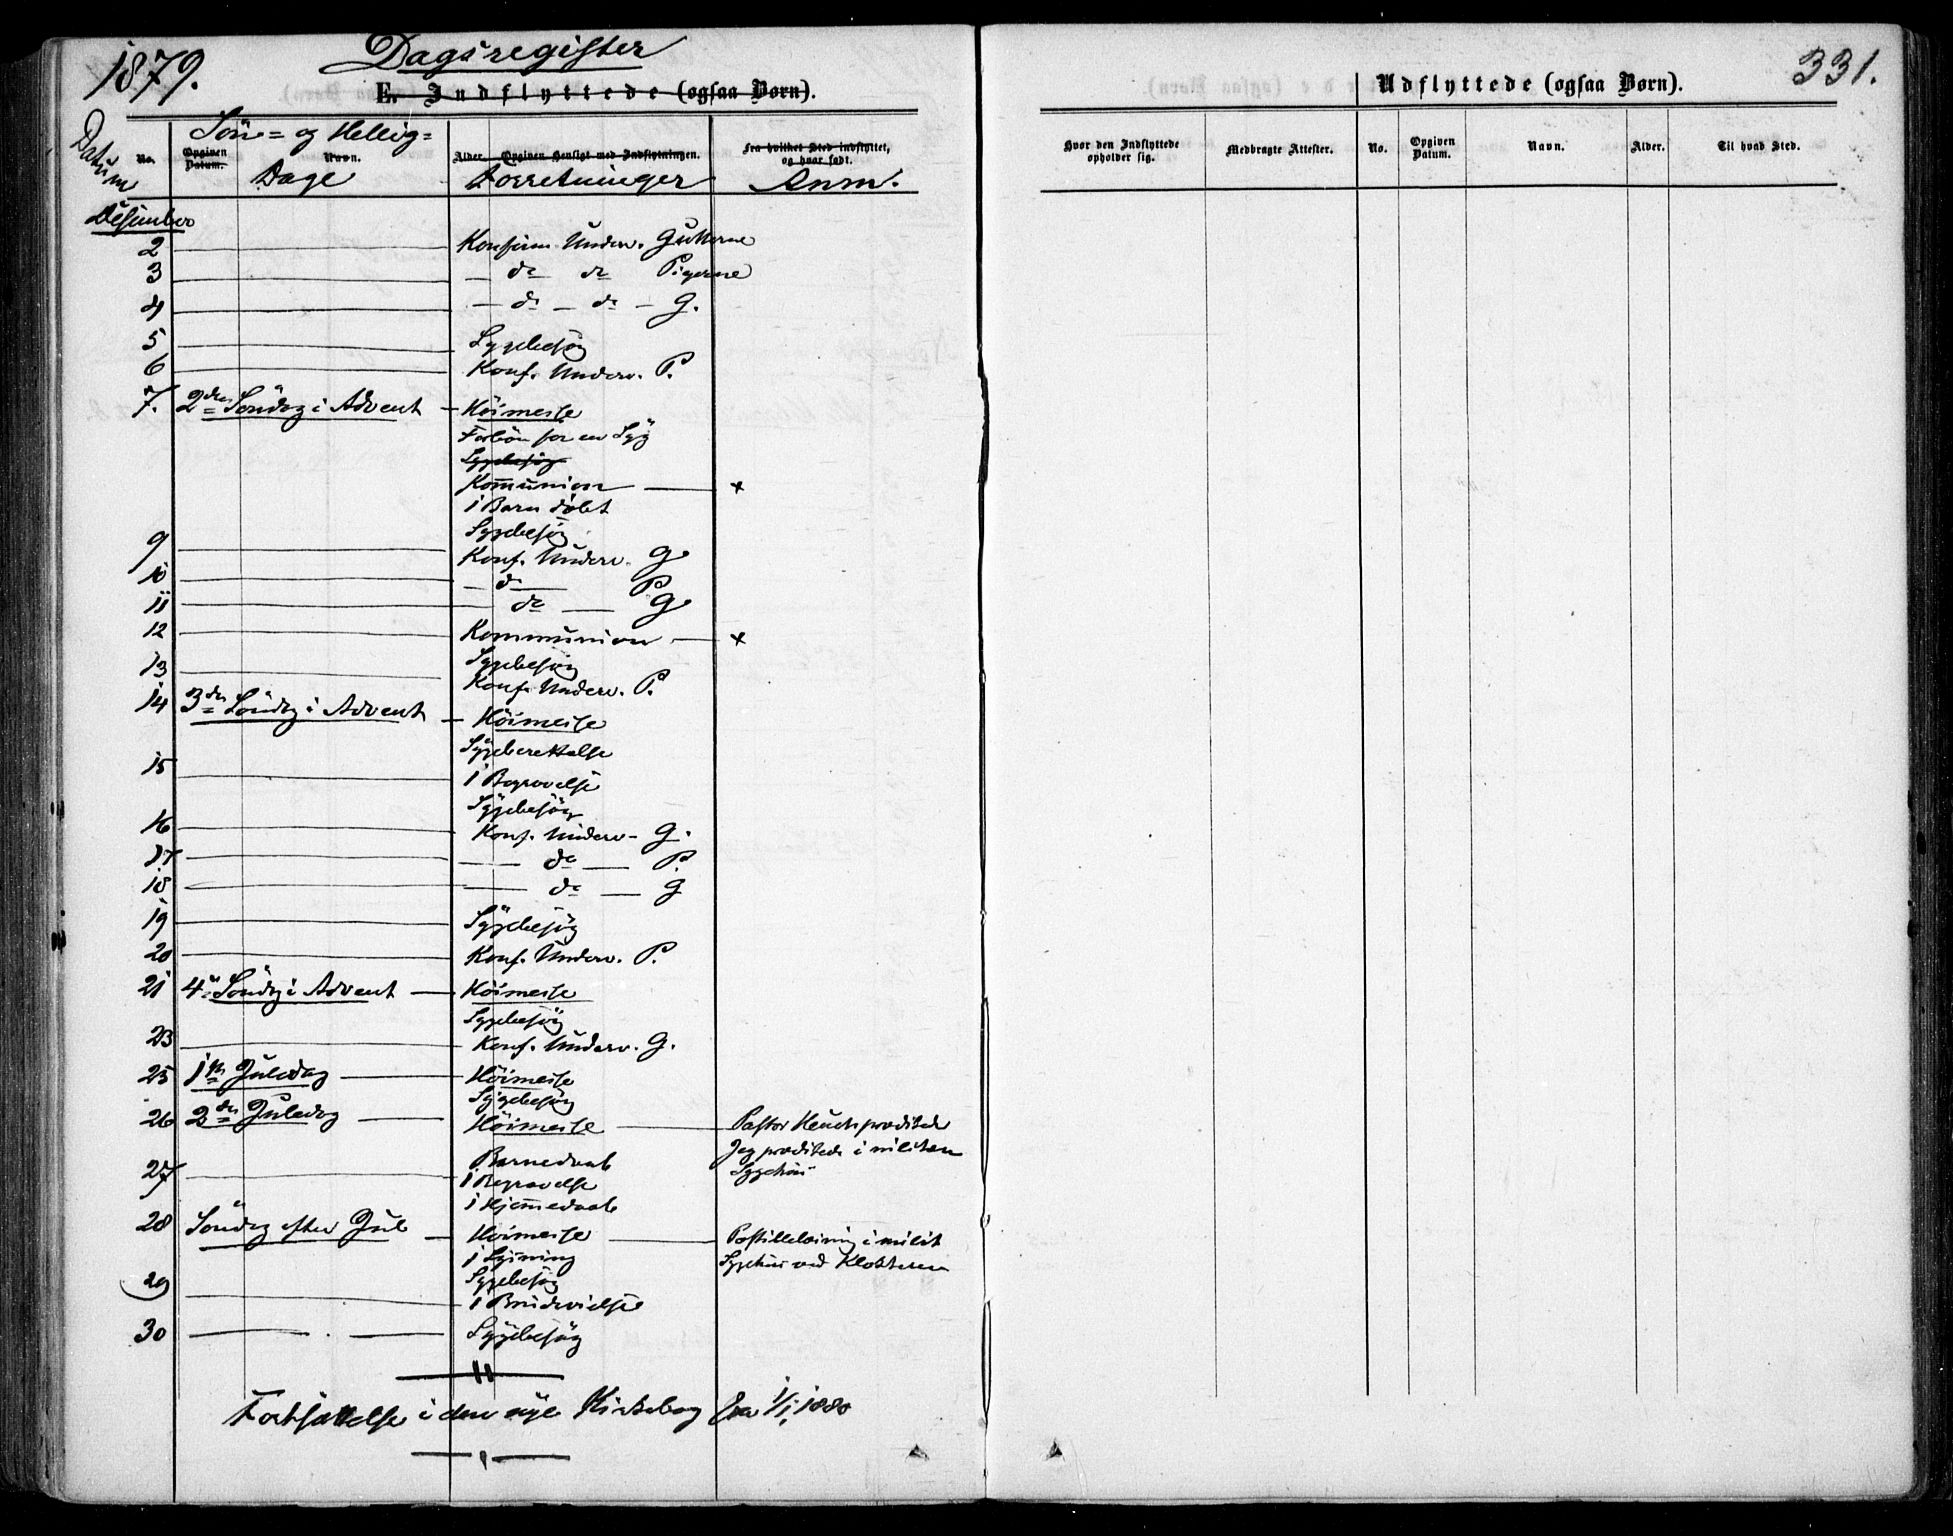 1879.
Dagsregister
331.
E. Indflyttede (ogsaa Børn).
Udflyttede (ogsaa Børn).
Datum
No.
Opgiven Datum.
Navn.
Søn- og Hellig-
Dage
Alder.
Opgiven Hensigt med Indflytningen.
Forretninger
Fra hvilket Sted indflyttet, og hvor født.
Anm.
Hvor den Indflyttede opholder sig.
Medbragte Attester.
No.
Opgiven Datum.
Navn.
Alder.
Til hvad Sted.
Desember
2 Konfirm. Underv. Gutterne
3 — do do Pigerne
4 — do — do — G.
5 Sygebesøg
6 Konf. Underv. P.
7. 2den Søndag i Advent — Höimesse
Forbøn for en Syg
Sygebesøg
Kommunion — x
1 Barn døbt
Sygebesøg
9 Konf. Underv. G
10 — do — P
11 — do — G
12 Kommunion — x
Sygebesøg
13 Konf. Underv. P.
14 3die Søndag i Advent — Höimesse
Sygeberettelse
15 1 Begravelse
Sygebesøg
16 Konf. Underv. G.
17 — do — P.
18 — do — G
19 Sygebesøg
20 Konf. Underv. P.
21 4de Søndag i Advent — Höimesse
Sygebesøg
23 Konf. Underv. G.
25 1ste Juledag — Höimesse
Sygebesøg
26 2den Juledag — Höimesse — Pastor Heuch prædikede
Jeg prædikede i militære
Sygehus
Barnedaab
27 1 Begravelse
1 Hjemmedaab
28 Søndag efter Jul — Höimesse — Postillelæsning i milit
Sygehus ved Klosteren
Sygebesøg
29 1 Brudevielse
30 Sygebesøg
Fortsættelse i den nye Kirkebog fra 1/1 1880